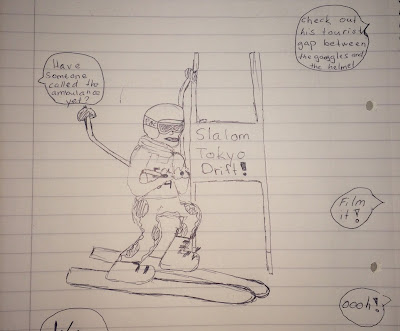 check out
his tourist
gap between
the goggles and
the helmet
Have
someone
called the
ambulance
yet?
Slalom
Tokyo
Drift!
Film
it!
oooh!